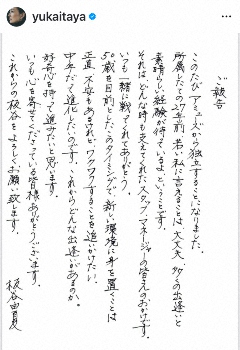 yukaitaya
ご報告
このたび アミューズから独立することになりました。
所属したての27年前 若い私に言えることは、大丈夫 多くの出逢いと
素晴らしい経験が待っているよ ということです。
それは、どんな時も支えてくれたスタッフ、マネージャーの皆さんのおかげです。
いつも一緒に戦ってくれてありがとう。
50歳を目前としたこのタイミングで、新しい環境に身を置くことは
正直、不安もあるけれど、ワクワクすることを追いかけたい。
中年だって進化したいのです。これからどんな出逢いがあるのか、
好奇心を持って進みたいと思います。
いつも心を寄せてくださっている皆様 ありがとうございます。
これからの板谷も よろしくお願い致します。
板谷由夏